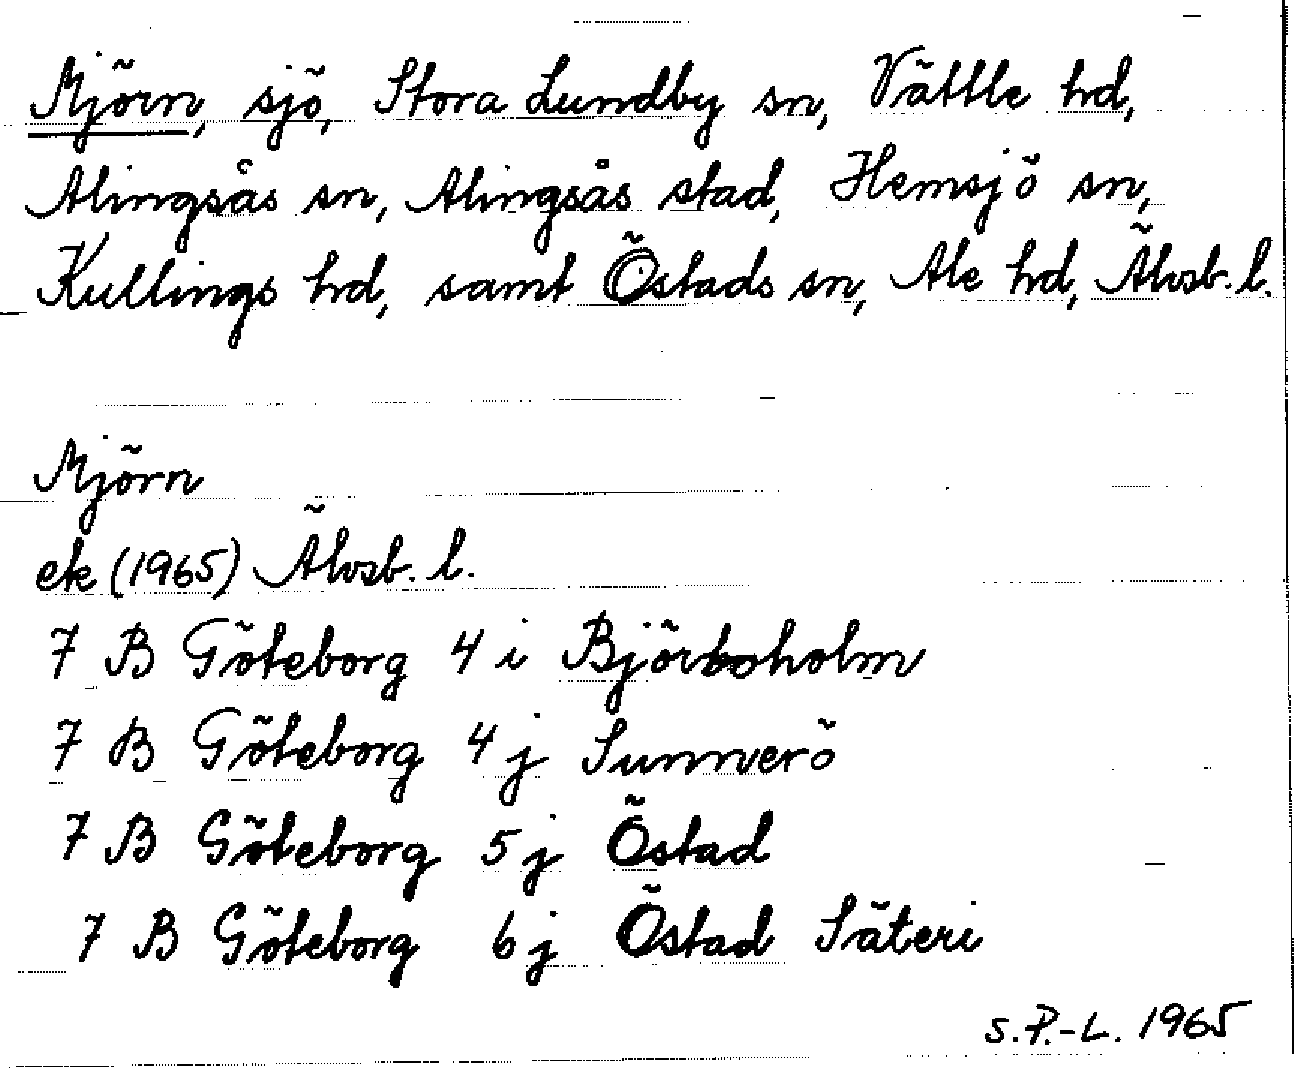 Mjörn, sjö, Stora Lundby sn, Vättle hd,
Alingsås sn, Alingsås stad, Hemsjö sn,
Kullings hd, samt Östads sn, Ale hd, Älvsb. l.
Mjörn
ek (1965) Älvsb. l.
7 B Göteborg 4 i Björboholm
7 B Göteborg 4 j Sunnverö
7 B Göteborg 5 j Östad
7 B Göteborg 6 j Östad Säteri
S.P.-L. 1965